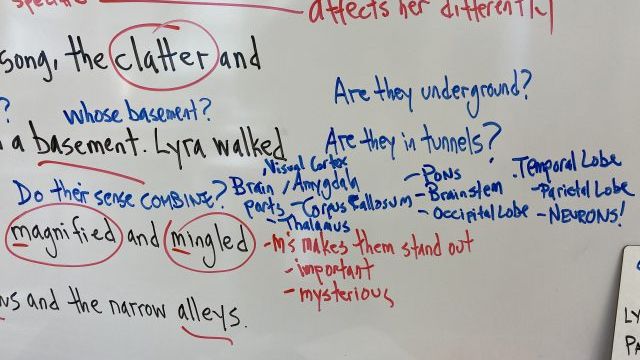 specific affects her differently
song, the clatter and
Are they underground?
? whose basement?
a basement. Lyra walked
Are they in tunnels?
Do their sense COMBINE?
Brain parts
Visual Cortex
Amygdala
- Corpus Callosum
Thalamus
- Pons
- Brainstem
- Occipital Lobe
Temporal Lobe
- Parietal Lobe
- NEURONS!
magnified and mingled
- m's makes them stand out
- important
- mysterious
and the narrow alleys.
LY
PA